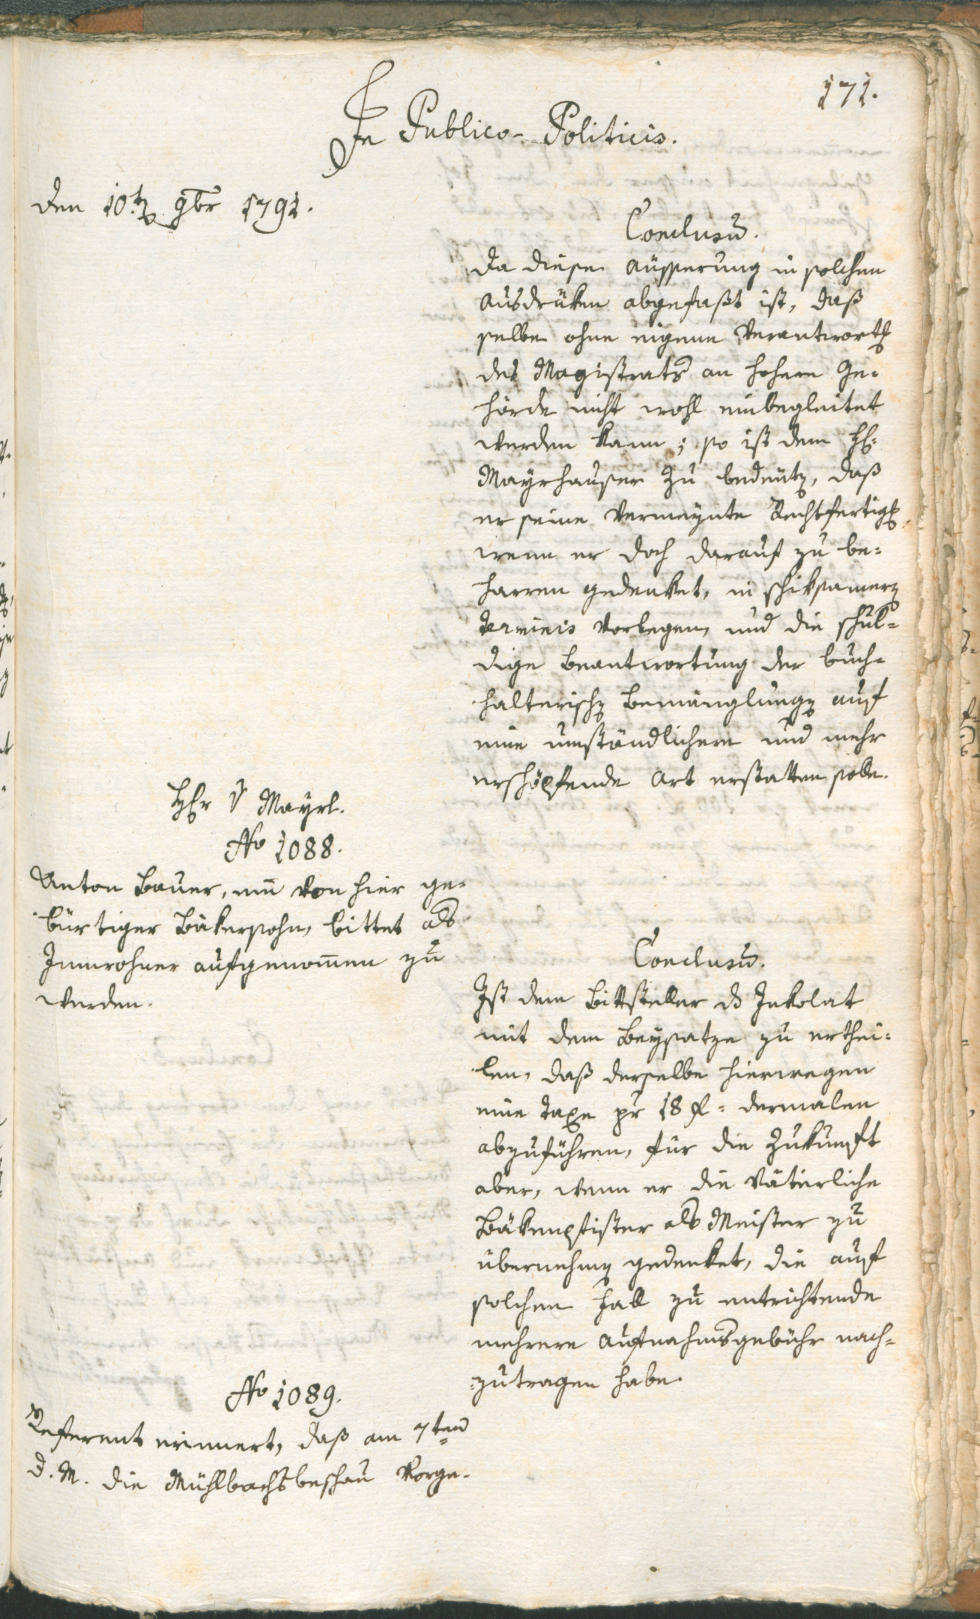 171.
In Publico-Politicis.
den 10t 9br 1791.
Conclusum.
Da diese Aüsserung in solchen
Ausdrüken abgefaßt ist, daß
selbe ohne eigene Verantwortg
des Magistrats an hohere Be-
hörde nicht wohl einbegleitet
werden kann; so ist dem H:
Mayrhauser zu bedeuten, daß
er seine vermeynte Rechtfertigg
wenn er doch darauf zu be-
harren gedenket, in schiksamern
Terminis vorlegen, und die schul-
dige Beantwortung der buch-
halterischen Bemänglungen auf
eine umständlichere und mehr
erschöpfende Art erstatten solle.
Hr v Mayrl.
No 1088.
Anton Bauer, ein von hier ge-
bürtiger Bäkersohn, bittet als
Innwohner aufgenommen zu
werden.
Conclusum.
Ist dem Bittsteller ds Inkolat
mit dem Beysatze zu erthei-
len, daß derselbe hierwegen
eine Taxe pr 18 f. dermalen
abzuführen, für die Zukunft
aber, wenn er die väterliche
Bäkenpfister als Meister zu
übernehmen gedenket, die auf
solchen Fall zu entrichtende
mehrere Aufnahmsgebühr nach-
zutragen habe.
No 1089.
Referent erinnert, daß am 7ten
d. M. die Mühlbachsbeschau vorge-